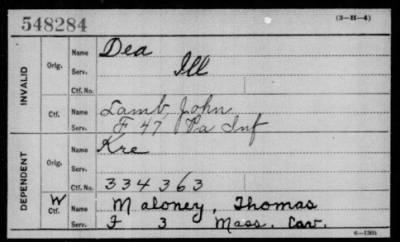 548284
(3-H-4)
INVALID
Orig. Name Dea
Serv. Ill
Ctf. No.
Ctf. Name Lamb, John
Serv. F 47 Pa Inf
DEPENDENT
Orig. Name Kre
Serv.
Ctf. No. 334363
W Ctf. Name Maloney, Thomas
Serv. F 3 Mass. Cav.